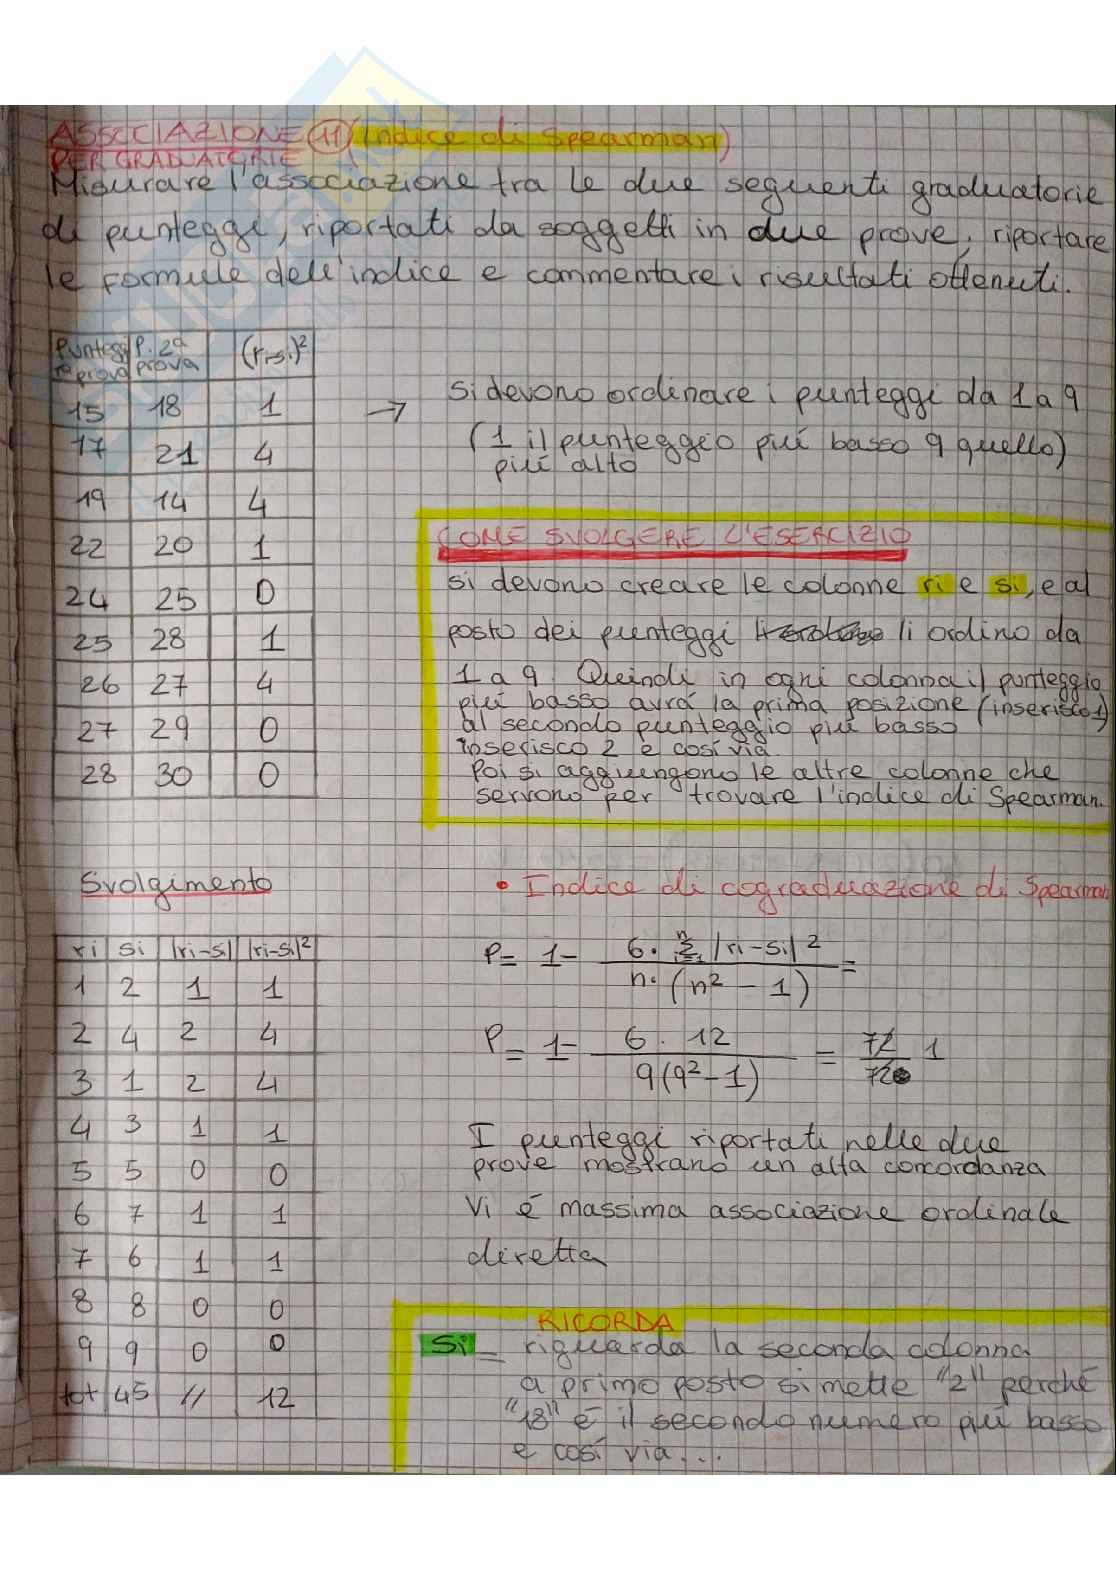 ASSOCIAZIONE 11 (Indice di Spearman)
PER GRADUATORIE
Misurare l'associazione tra le due seguenti graduatorie
di punteggi, riportati da soggetti in due prove, riportare
le formule dell'indice e commentare i risultati ottenuti.
Punteggi 1ª prova | P. 2ª prova | (ri-si)²
15 18 1
17 21 4
19 14 4
22 20 1
24 25 0
25 28 1
26 27 4
27 29 0
28 30 0
→ si devono ordinare i punteggi da 1 a 9
(1 il punteggio piú basso 9 quello)
piú alto
COME SVOLGERE L'ESERCIZIO
si devono creare le colonne ri e si, e al
posto dei punteggi li ordino da
1 a 9. Quindi in ogni colonna il punteggio
piú basso avrá la prima posizione (inserisco 1)
al secondo punteggio piú basso
inserisco 2 e cosí via.
Poi si aggiungono le altre colonne che
servono per trovare l'indice di Spearman.
Svolgimento
ri si |ri-si| |ri-si|²
1 2 1 1
2 4 2 4
3 1 2 4
4 3 1 1
5 5 0 0
6 7 1 1
7 6 1 1
8 8 0 0
9 9 0 0
tot 45 // 12
• Indice di cograduazione di Spearman
P = 1 - 6 · Σ |ri-si|² / n · (n² - 1) =
P = 1 - 6 · 12 / 9(9² - 1) = 72 / 720 1
I punteggi riportati nelle due
prove mostrano un alta concordanza
Vi é massima associazione ordinale
diretta
RICORDA
Si = riguarda la seconda colonna
a primo posto si mette "2" perché
"18" é il secondo numero piú basso
e cosí via...